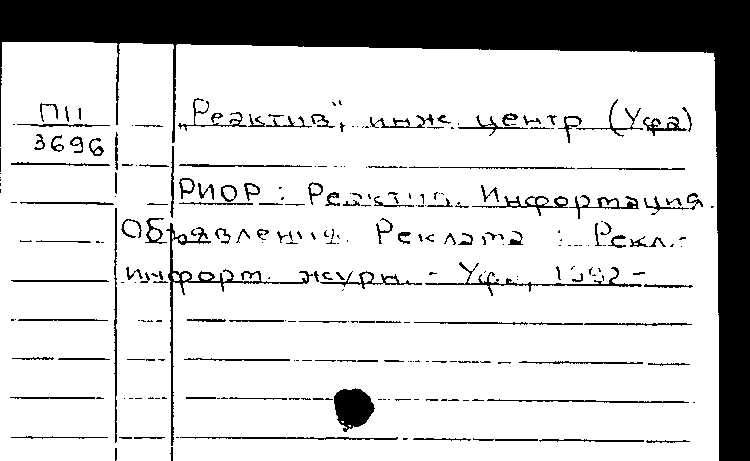 П11
3696
„Реактив", инж. центр (Уфа)
РИОР : Реактив. Информация.
Объявления. Реклама : Рекл.-
информ. журн. - Уфа, 1992-